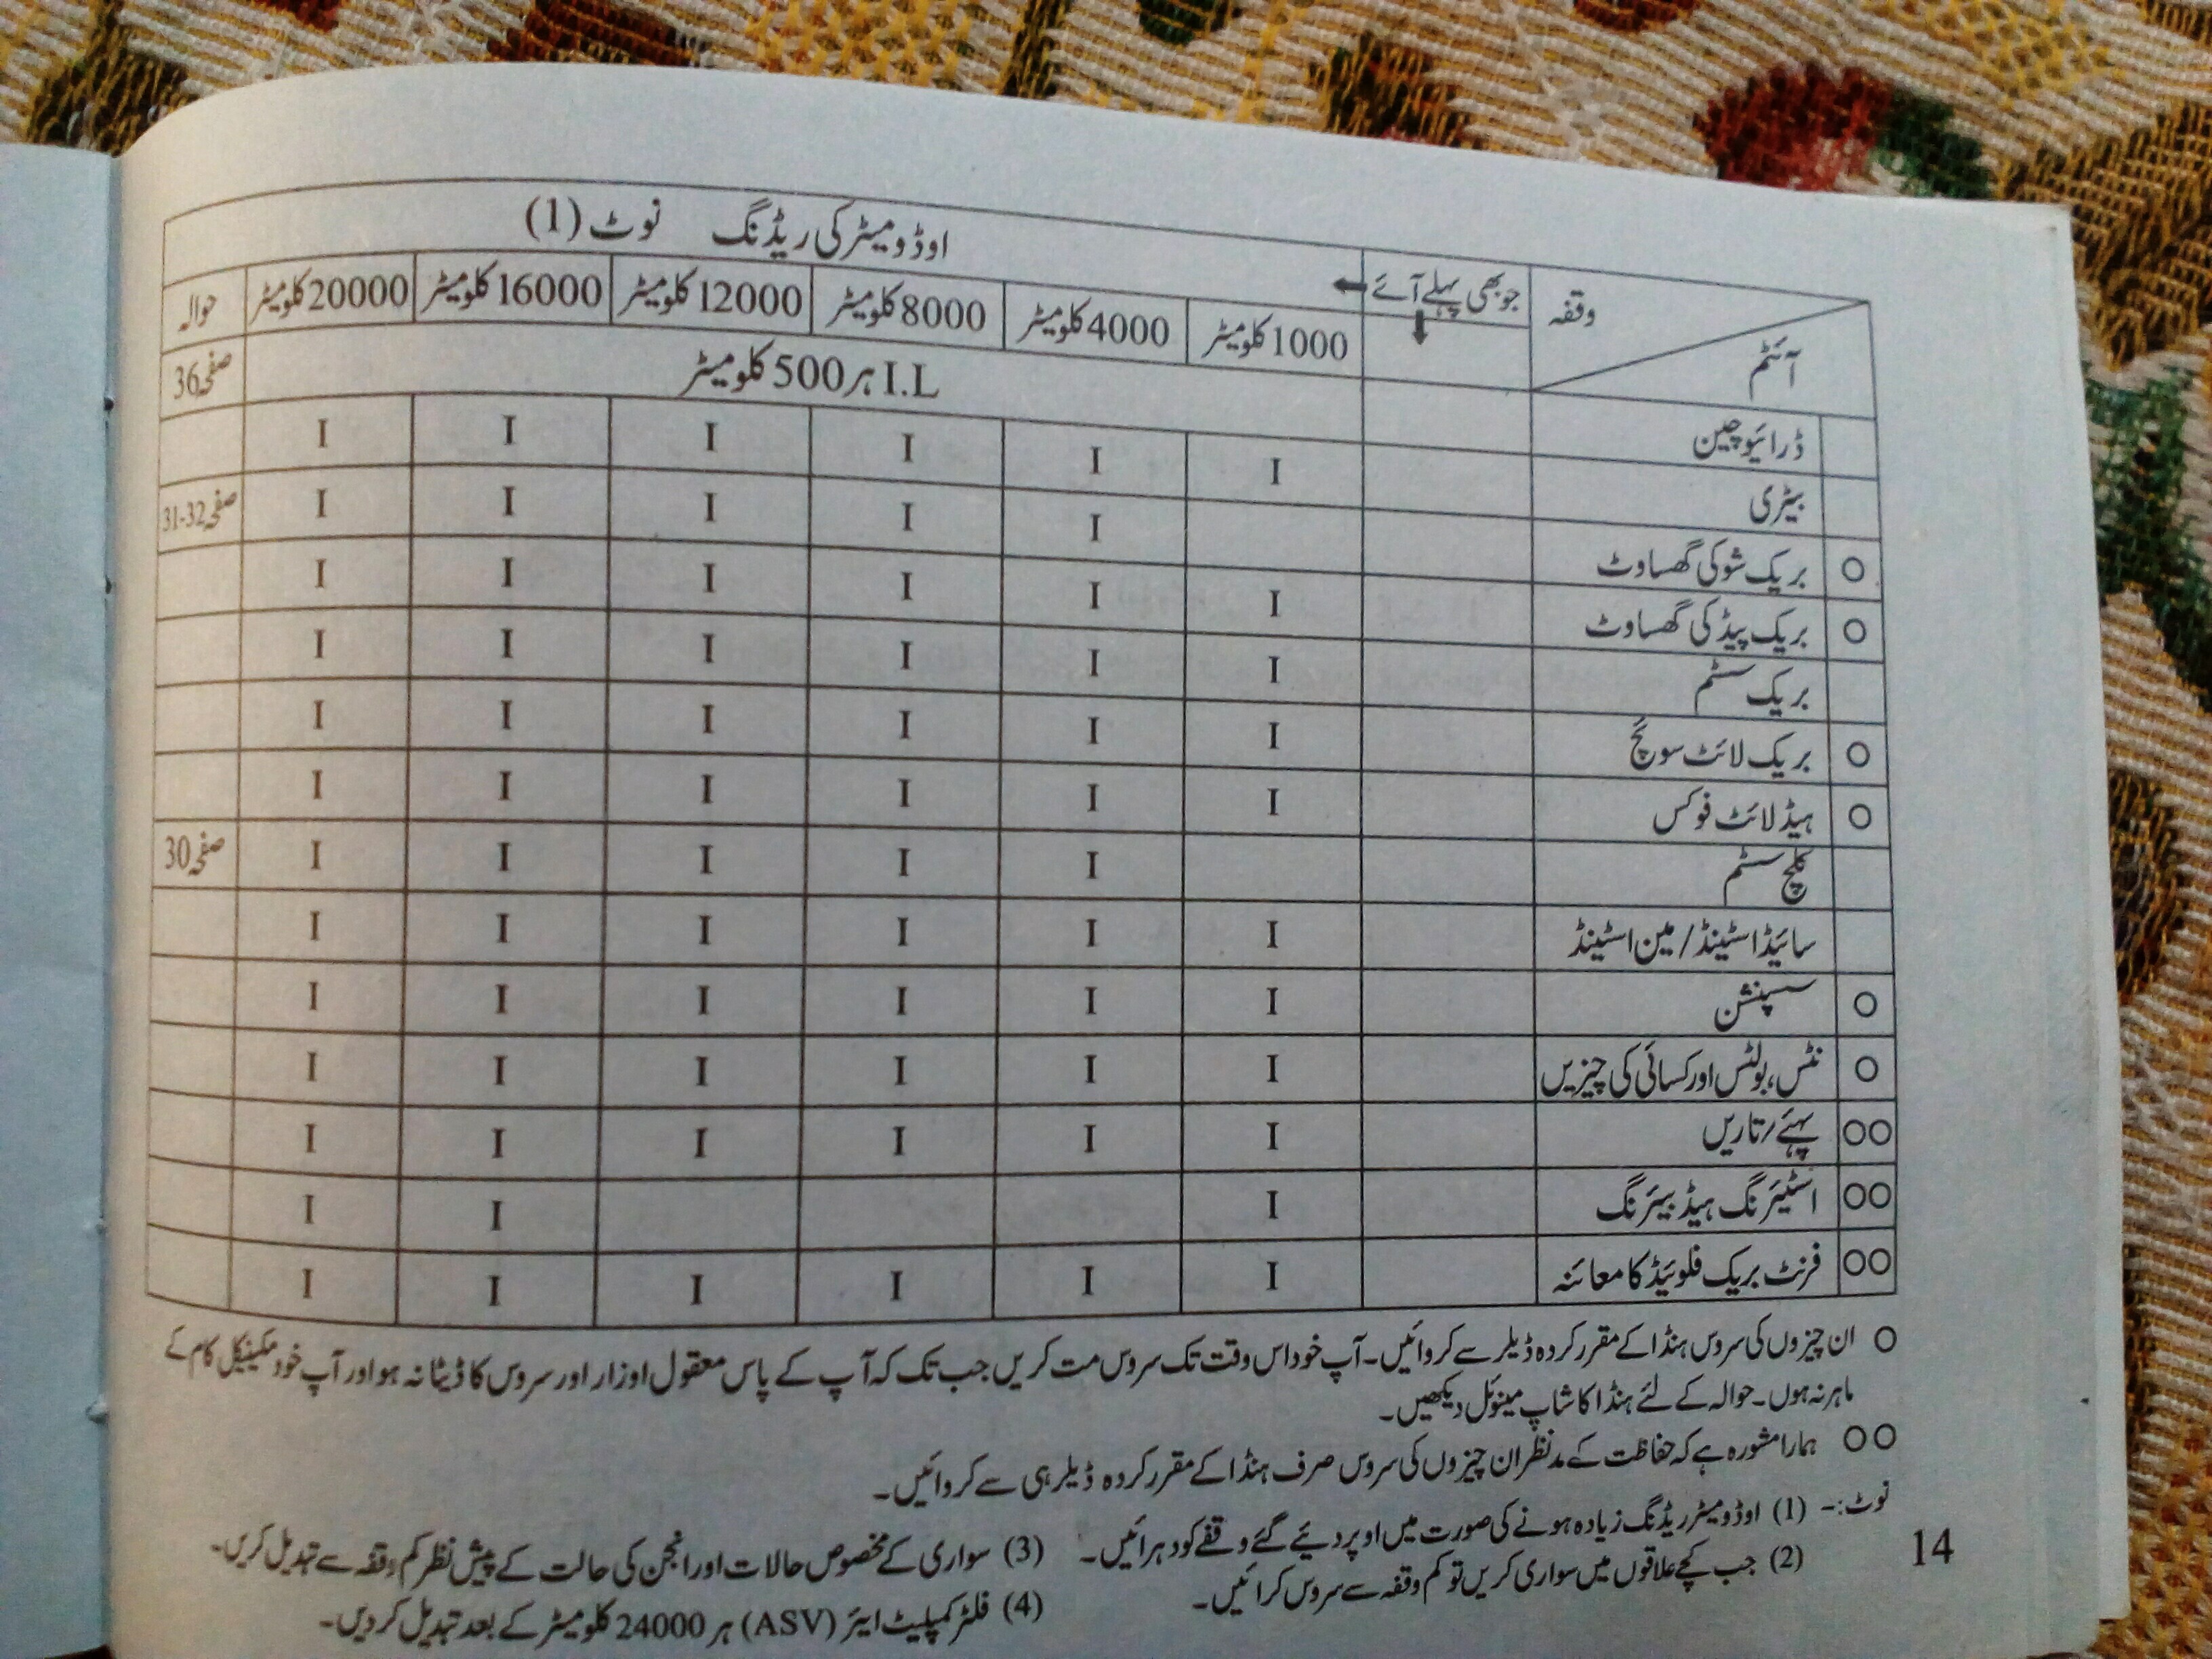 اوڈومیٹر کی ریڈنگ نوٹ (1)
وقفہ جو بھی پہلے آئے ← ↓
آئٹم 1000 کلومیٹر 4000 کلومیٹر 8000 کلومیٹر 12000 کلومیٹر 16000 کلومیٹر 20000 کلومیٹر حوالہ
ڈرائیو چین I.L ہر 500 کلومیٹر صفحہ 36
بیٹری I I I I I I
○ بریک شو کی گھساوٹ I I I I I صفحہ 31-32
○ بریک پیڈ کی گھساوٹ I I I I I I
بریک سسٹم I I I I I I
○ بریک لائٹ سوئچ I I I I I I
○ ہیڈ لائٹ فوکس I I I I I I
کلچ سسٹم I I I I I صفحہ 30
سائیڈ اسٹینڈ / مین اسٹینڈ I I I I I I
○ سسپنشن I I I I I I
○ نٹس، بولٹس اور کسائی کی چیزیں I I I I I I
○○ پہئے / تاریں I I I I I I
○○ اسٹیئرنگ ہیڈ بیئرنگ I I I
○○ فرنٹ بریک فلوئیڈ کا معائنہ I I I I I I
○ ان چیزوں کی سروس ہنڈا کے مقرر کردہ ڈیلر سے کروائیں۔ آپ خود اس وقت تک سروس مت کریں جب تک کہ آپ کے پاس معقول اوزار اور سروس کا ڈیٹا نہ ہو اور آپ خود مکینیکل کام کے
ماہر نہ ہوں۔ حوالہ کے لئے ہنڈا کا شاپ مینوئل دیکھیں۔
○○ ہمارا مشورہ ہے کہ حفاظت کے مدنظر ان چیزوں کی سروس صرف ہنڈا کے مقرر کردہ ڈیلر ہی سے کروائیں۔
نوٹ:- (1) اوڈومیٹر ریڈنگ زیادہ ہونے کی صورت میں اوپر دیئے گئے وقفے کو دہرائیں۔
(2) جب کچے علاقوں میں سواری کریں تو کم وقفہ سے سروس کرائیں۔
(3) سواری کے مخصوص حالات اور انجن کی حالت کے پیش نظر کم وقفہ سے تبدیل کریں۔
(4) فلٹر کمپلیٹ ایئر (ASV) ہر 24000 کلومیٹر کے بعد تبدیل کر دیں۔
14